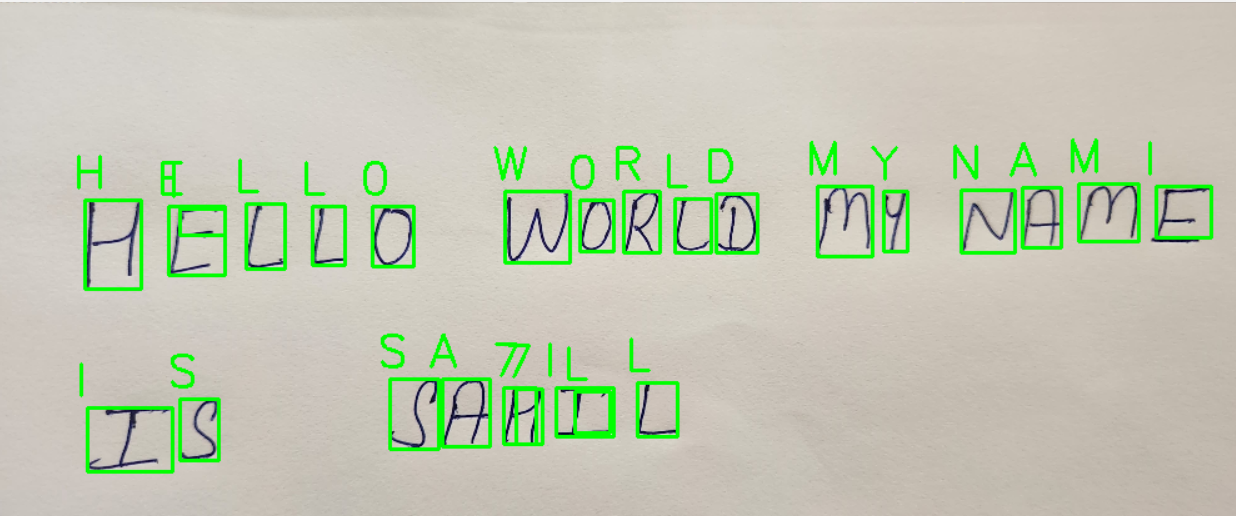 H E L L O W O R L D M Y N A M I
HELLO WORLD MY NAME
I S S A 7 7 I L L
IS SAHIL